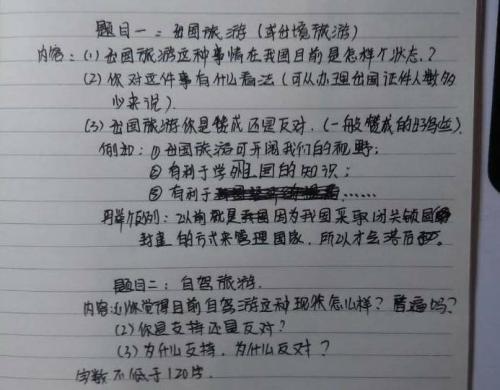 题目一：出国旅游（或出境旅游）
内容：(1) 出国旅游这种事情在我国目前是怎样个状态？
(2) 你对这件事有什么看法（可从办理出国证件人数多
少来说）.
(3) 出国旅游你是赞成还是反对.（一般赞成的好写些）.
例如：① 出国旅游可开阔我们的视野；
② 有利于学外国的知识；
③ 有利于……
再举个反例：以前就是因为我国采取闭关锁国
封建的方式来管理国家，所以才会落后.
题目二：自驾旅游.
内容：(1) 你觉得目前自驾游这种现状怎么样？普遍吗？
(2) 你是支持还是反对？
(3) 为什么支持，为什么反对？
字数不低于120字.